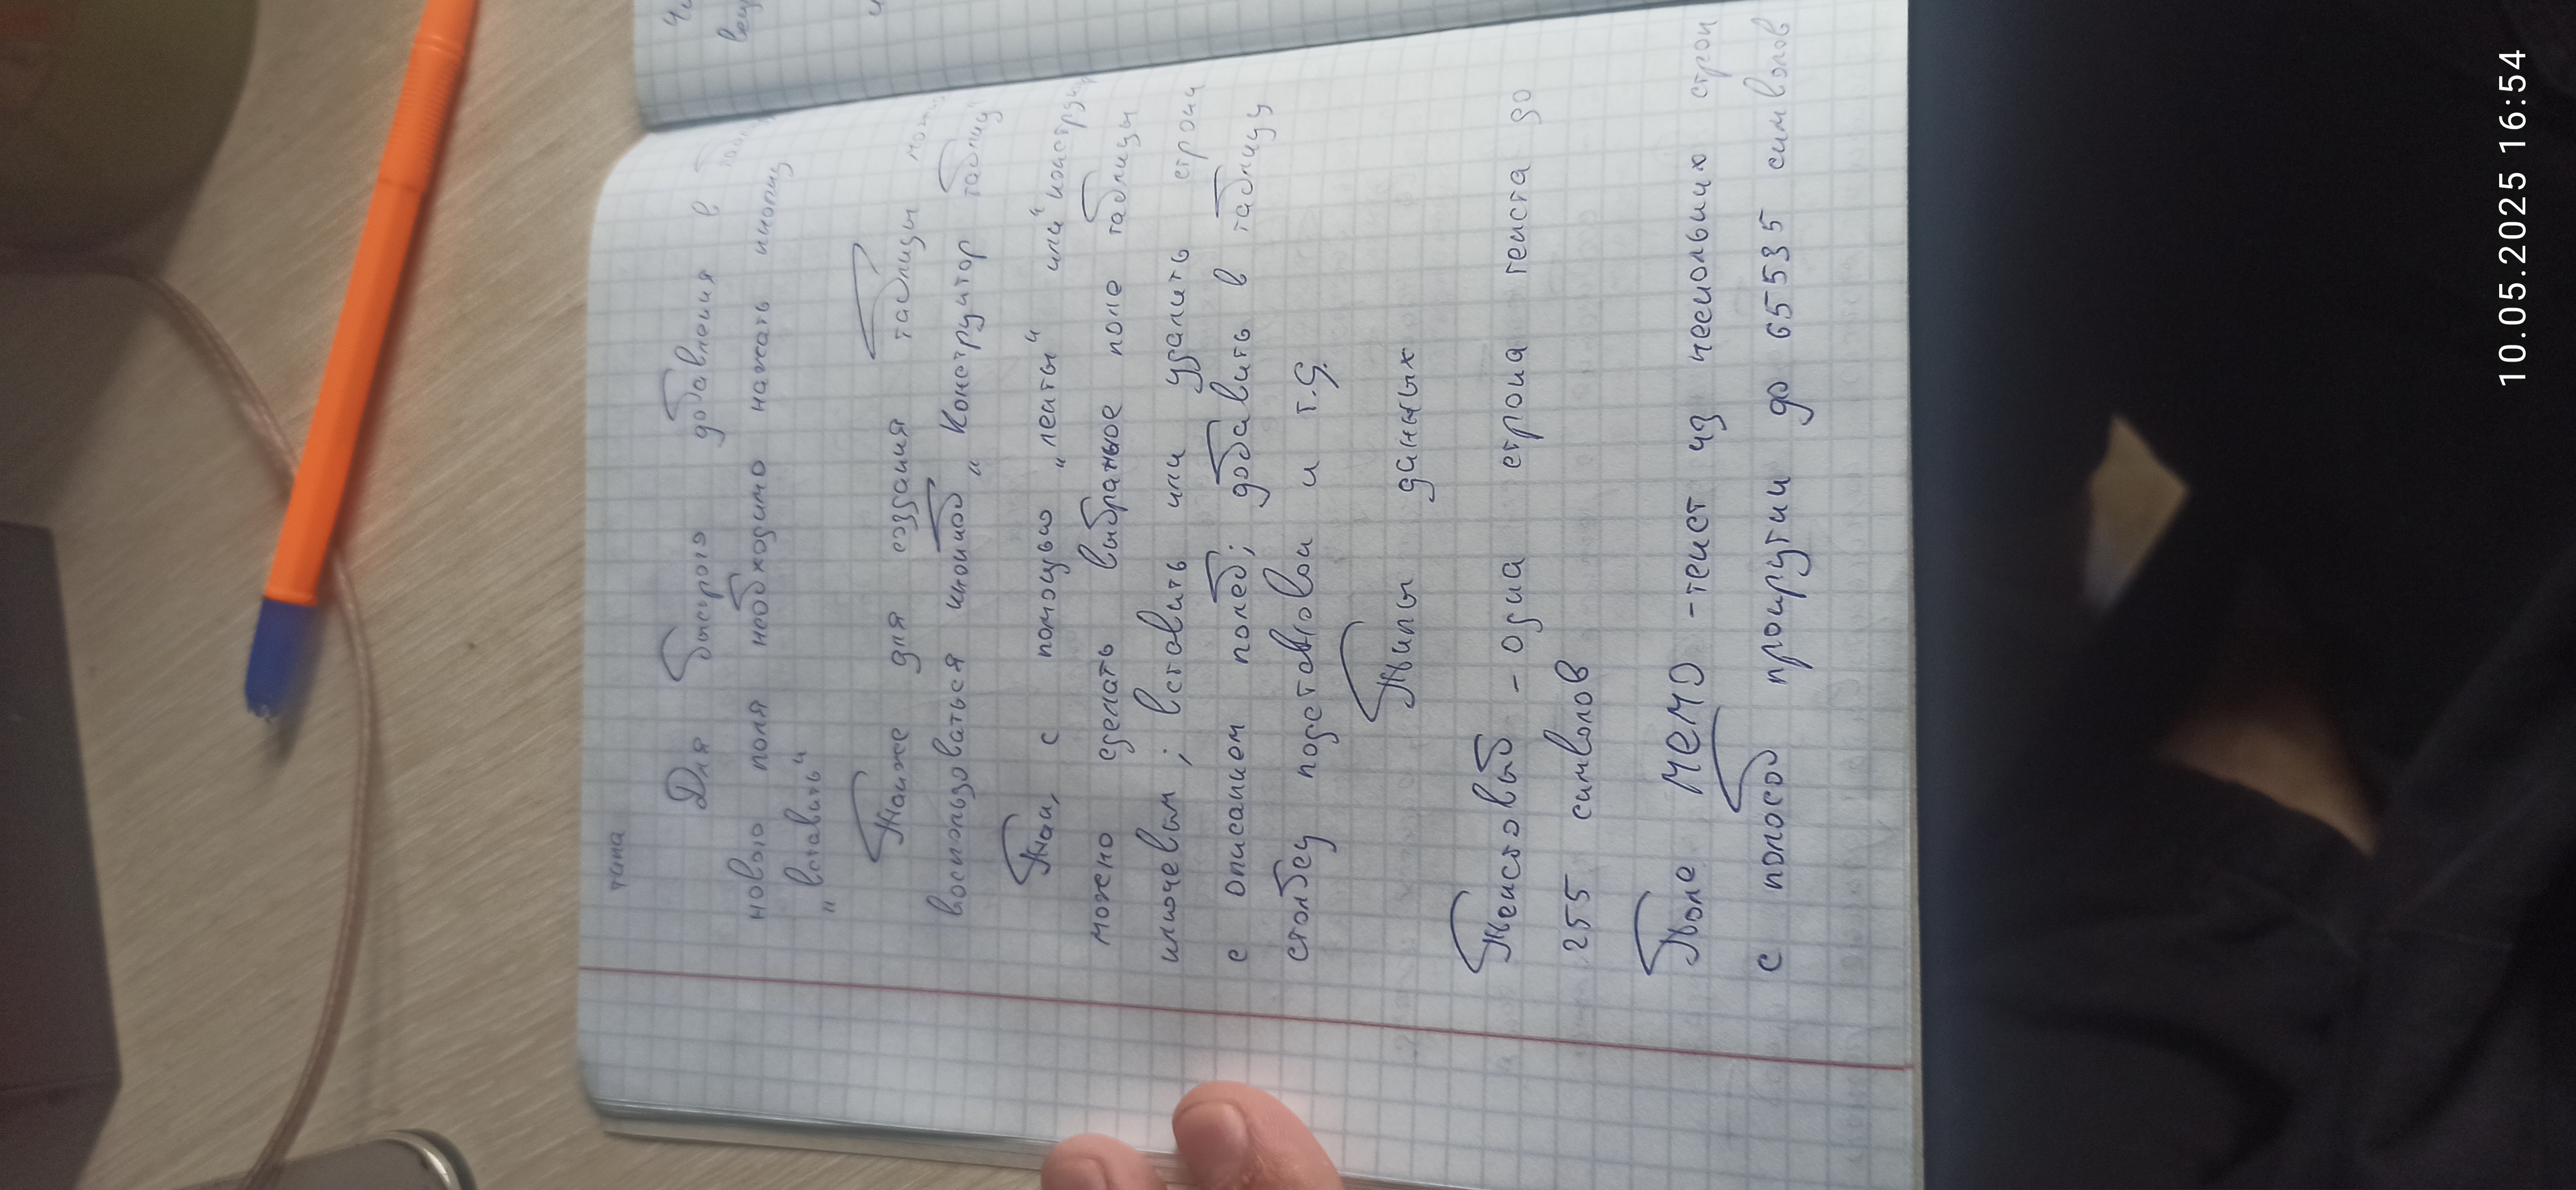 типа
Для быстрого добавления в
нового поля необходимо нажать кнопку
„вставить“
Также для создания таблицы
воспользоваться кнопкой „Конструктор таблиц“
Так, с помощью „ленты“ или
можно сделать выбранное поле таблицы
ключевым; вставить или удалить строки
с описанием полей; добавить в таблицу
столбец подстановки и т.д.
Типы данных
Текстовый - одна строка текста до
255 символов
Поле МЕМО - текст из нескольких строк
с полосой прокрутки до 65535 символов
10.05.2025 16:54